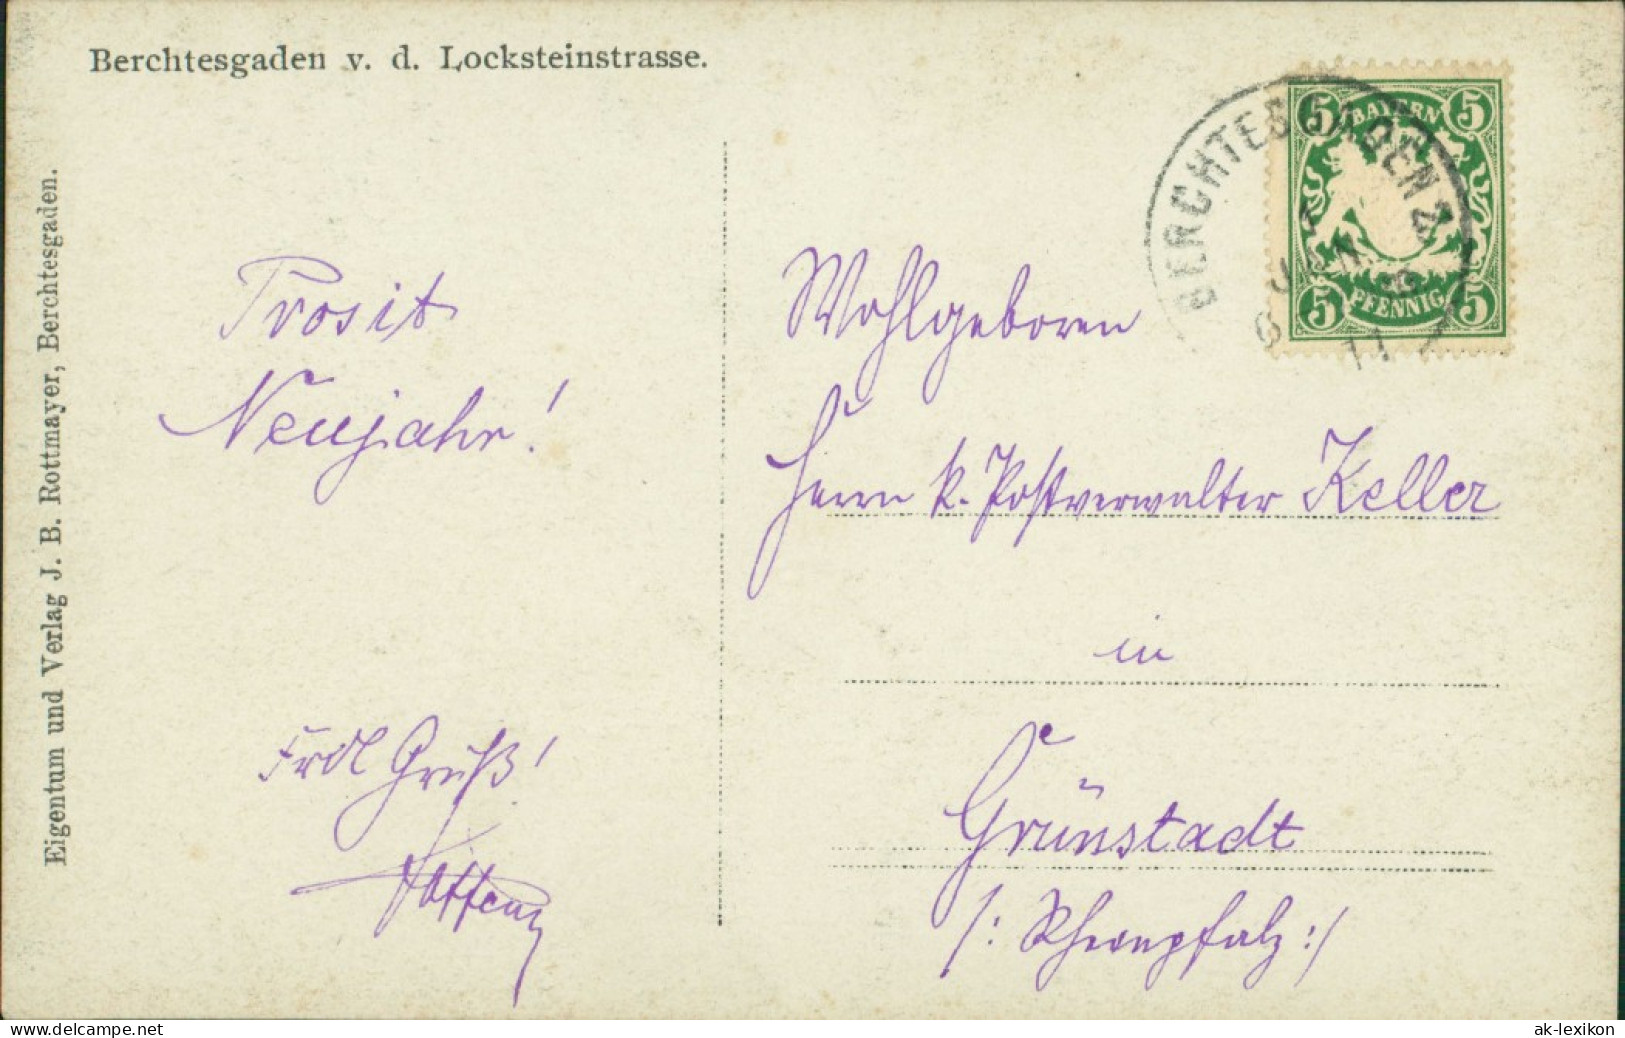 Berchtesgaden v. d. Locksteinstrasse.
Eigentum und Verlag J. B. Rottmayer, Berchtesgaden.
Prosit
Neujahr!
Frdl Gruß!
BAYERN
5 5
5 5
PFENNIG
BERCHTESGADEN 2
1
JAN.
6 11
Wohlgeboren
Herrn k. Postverwalter Keller
in
Grünstadt
/: Rheinpfalz :/
www.delcampe.net
ak-lexikon